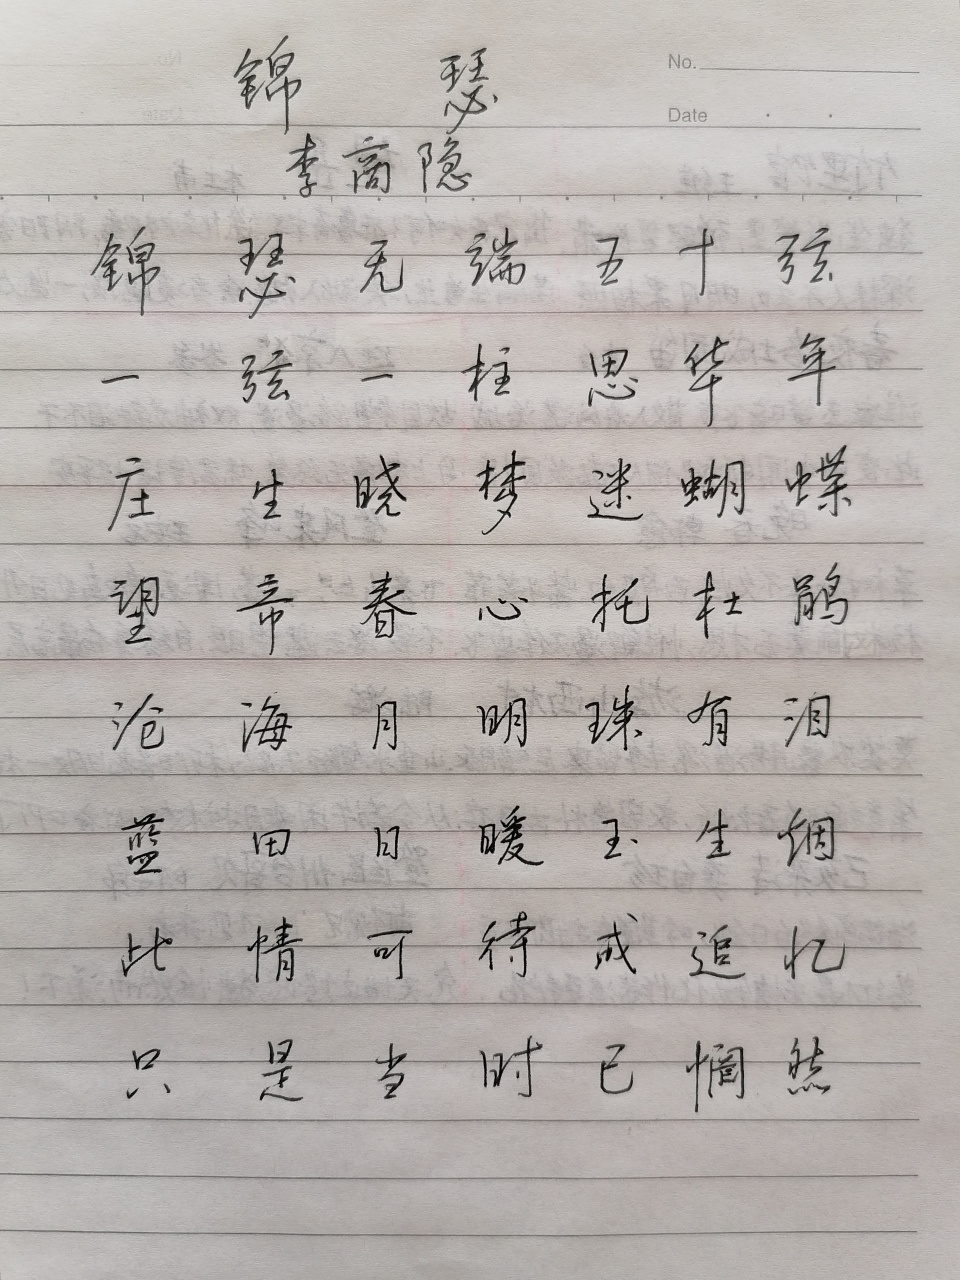 No.
Date
锦瑟
李商隐
锦瑟无端五十弦
一弦一柱思华年
庄生晓梦迷蝴蝶
望帝春心托杜鹃
沧海月明珠有泪
蓝田日暖玉生烟
此情可待成追忆
只是当时已惘然